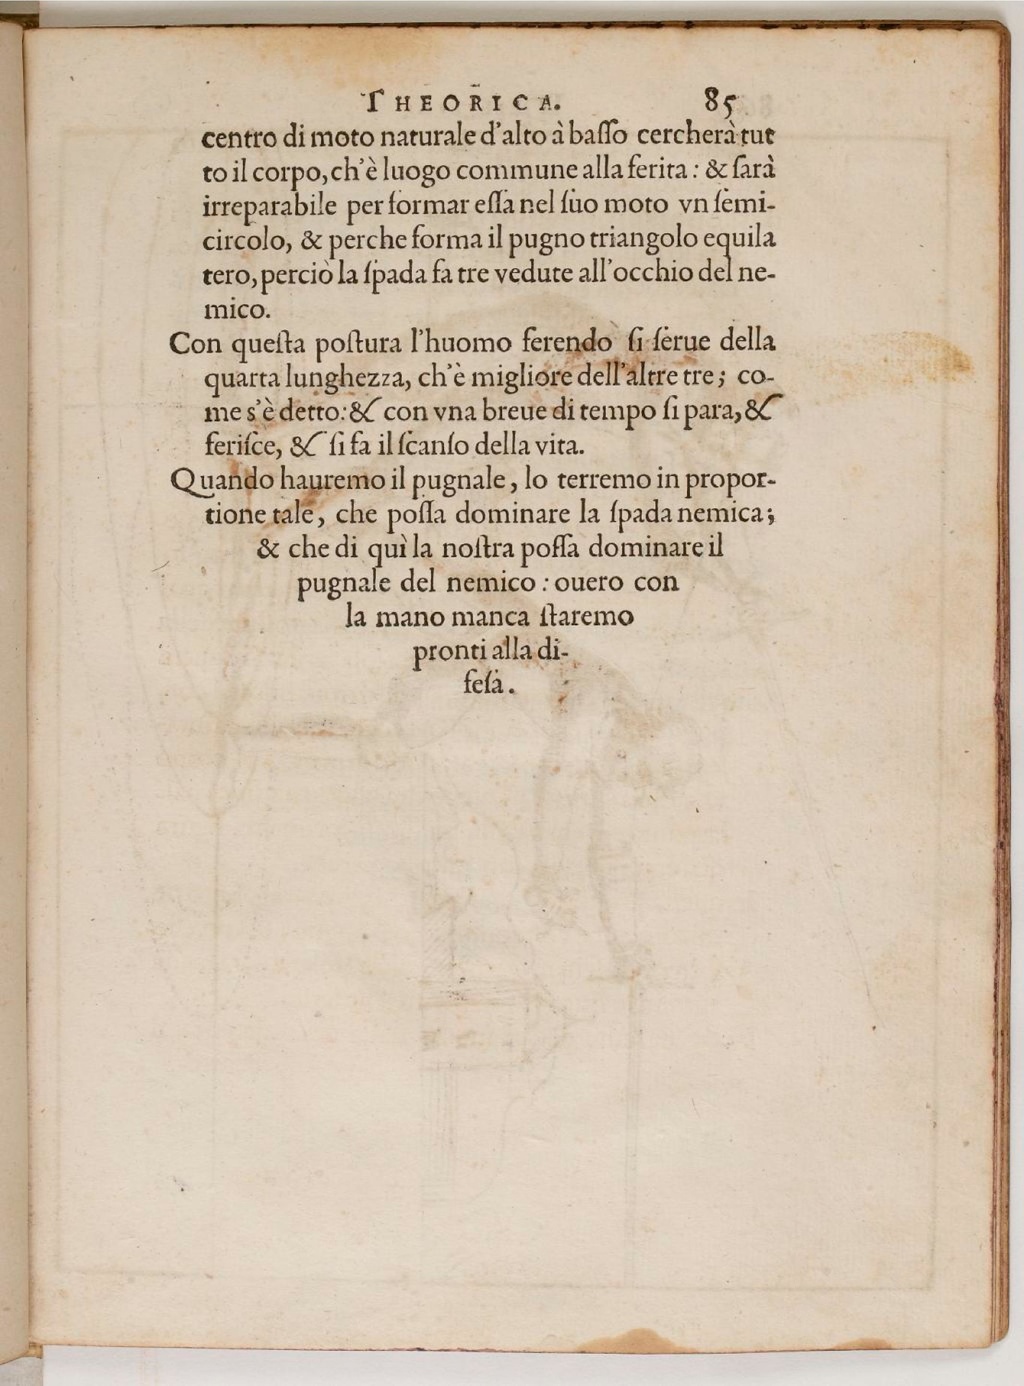 THEORICA. 85
centro di moto naturale d'alto à baſſo cercherà tut
to il corpo, ch'è luogo commune alla ferita: & ſarà
irreparabile per formar eſſa nel ſuo moto vn ſemi-
circolo, & perche forma il pugno triangolo equila
tero, perciò la ſpada fa tre vedute all'occhio del ne-
mico.
Con queſta poſtura l'huomo ferendo ſi ſerue della
quarta lunghezza, ch'è migliore dell'altre tre; co-
me s'è detto: & con vna breue di tempo ſi para, &
feriſce, & ſi fa il ſcanſo della vita.
Quando hauremo il pugnale, lo terremo in propor-
tione tale, che poſſa dominare la ſpada nemica;
& che di quì la noſtra poſſa dominare il
pugnale del nemico: ouero con
la mano manca ſtaremo
pronti alla di-
feſa.